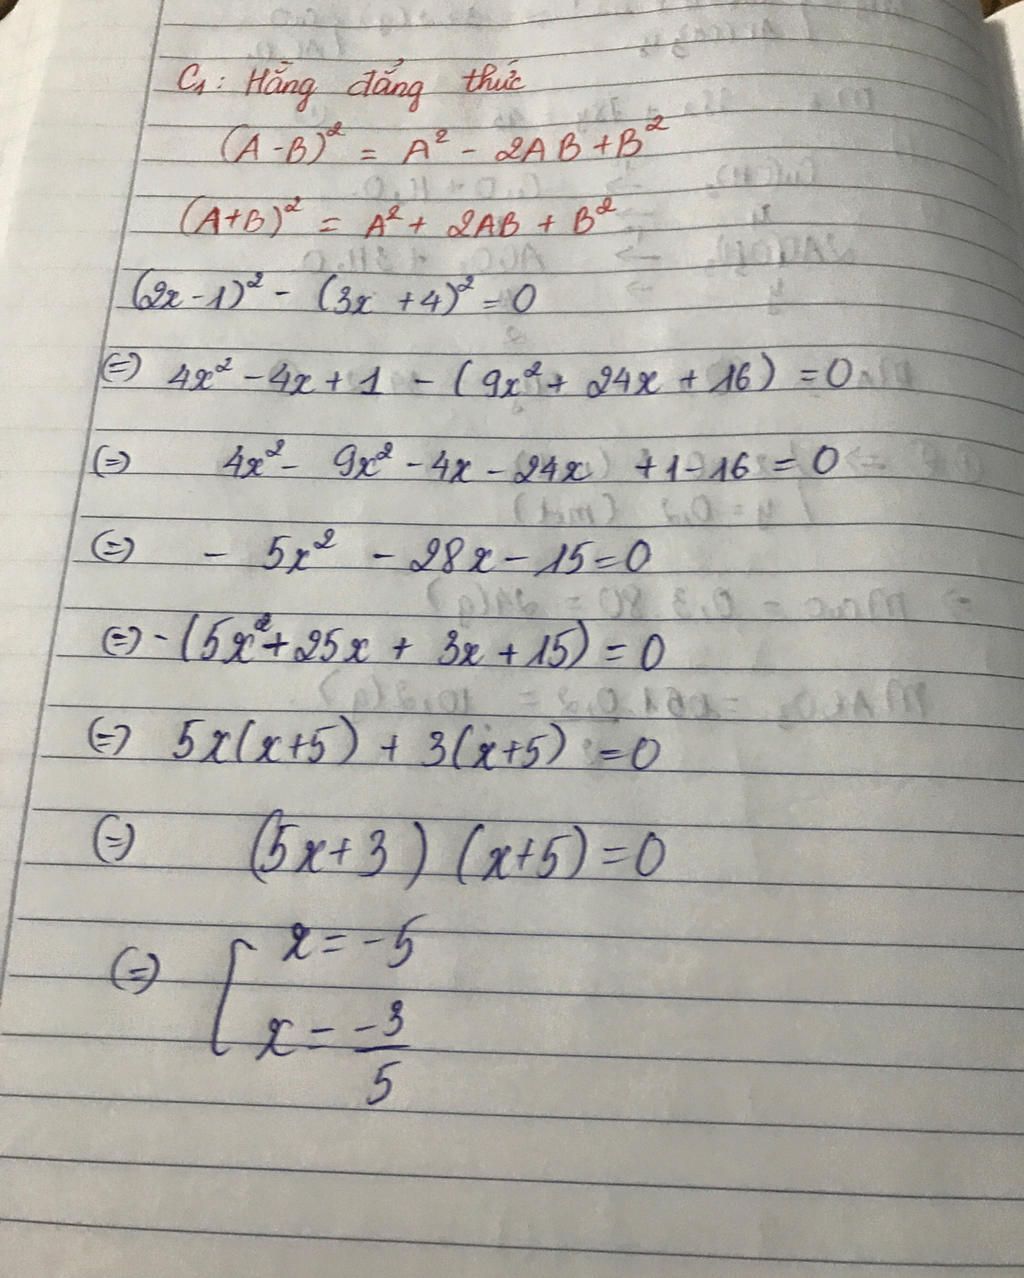 C₁: Hằng đẳng thức
(A-B)² = A² - 2AB + B²
(A+B)² = A² + 2AB + B²
(2x-1)² - (3x +4)² = 0
(=) 4x² - 4x + 1 - (9x² + 24x + 16) = 0
(=) 4x² - 9x² - 4x - 24x + 1 - 16 = 0
(=) - 5x² - 28x - 15 = 0
(=) - (5x² + 25x + 3x + 15) = 0
(=) 5x(x+5) + 3(x+5) = 0
(=) (5x+3) (x+5) = 0
(=) [ x = -5
x = -3/5